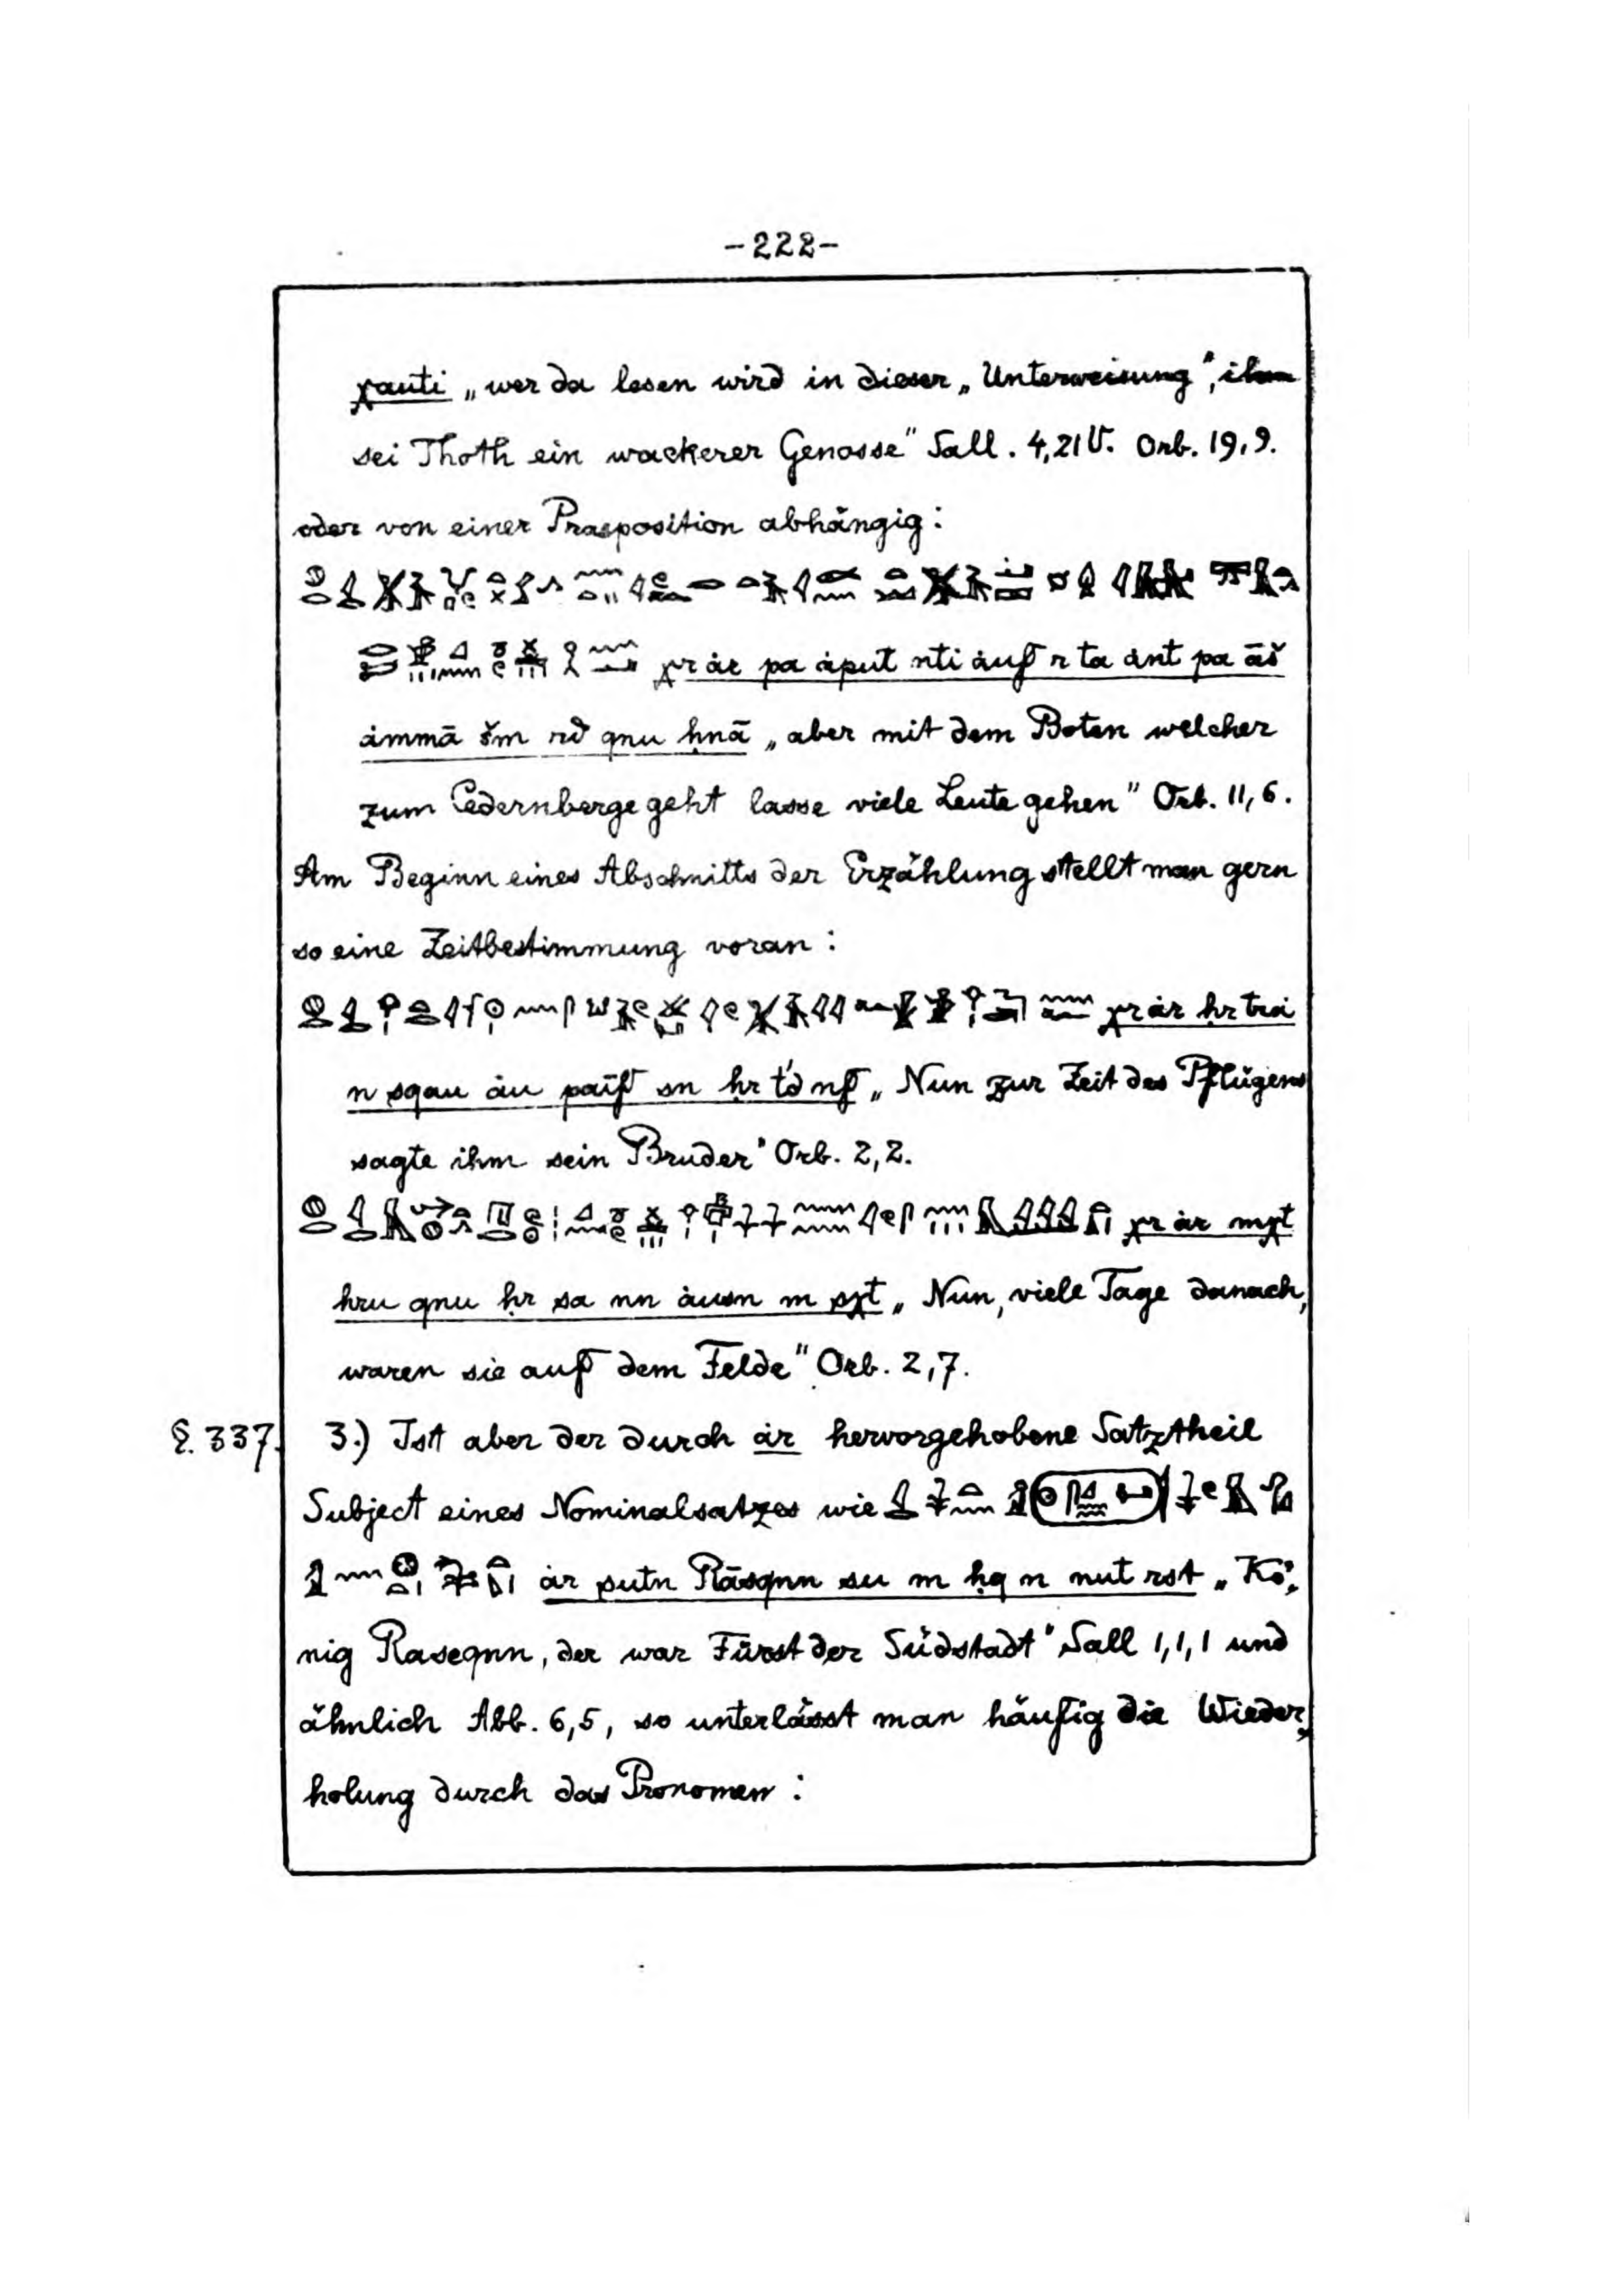 -222-
χauti „wer da lesen wird in dieser „Unterweisung“, ihm
sei Thoth ein wackerer Genosse“ Sall. 4,21 V. Orb. 19,9.
oder von einer Praeposition abhängig:
χr ȧr pa ȧput nti ȧuf r ta ȧnt pa āš
ȧmmā šm rd qnu ḥnā „aber mit dem Boten welcher
zum Cedernberge geht lasse viele Leute gehen“ Orb. 11,6.
Am Beginn eines Abschnitts der Erzählung stellt man gern
so eine Zeitbestimmung voran:
χr ȧr ḥr trȧ
n sqau ȧu païf sn ḥr t'd nf „Nun zur Zeit des Pflügens
sagte ihm sein Bruder“ Orb. 2,2.
χr ȧr mχt
hru qnu ḥr sa nn ȧusn m sχt „Nun, viele Tage danach,
waren sie auf dem Felde“ Orb. 2,7.
§. 337. 3.) Ist aber der durch ȧr hervorgehobene Satztheil
Subject eines Nominalsatzes wie
ȧr sutn Rāsqnn su m ḥq n nut rst „Kö-
nig Raseqnn, der war Fürst der Südstadt“ Sall 1,1,1 und
ähnlich Abb. 6,5, so unterlässt man häufig die Wieder-
holung durch das Pronomen: